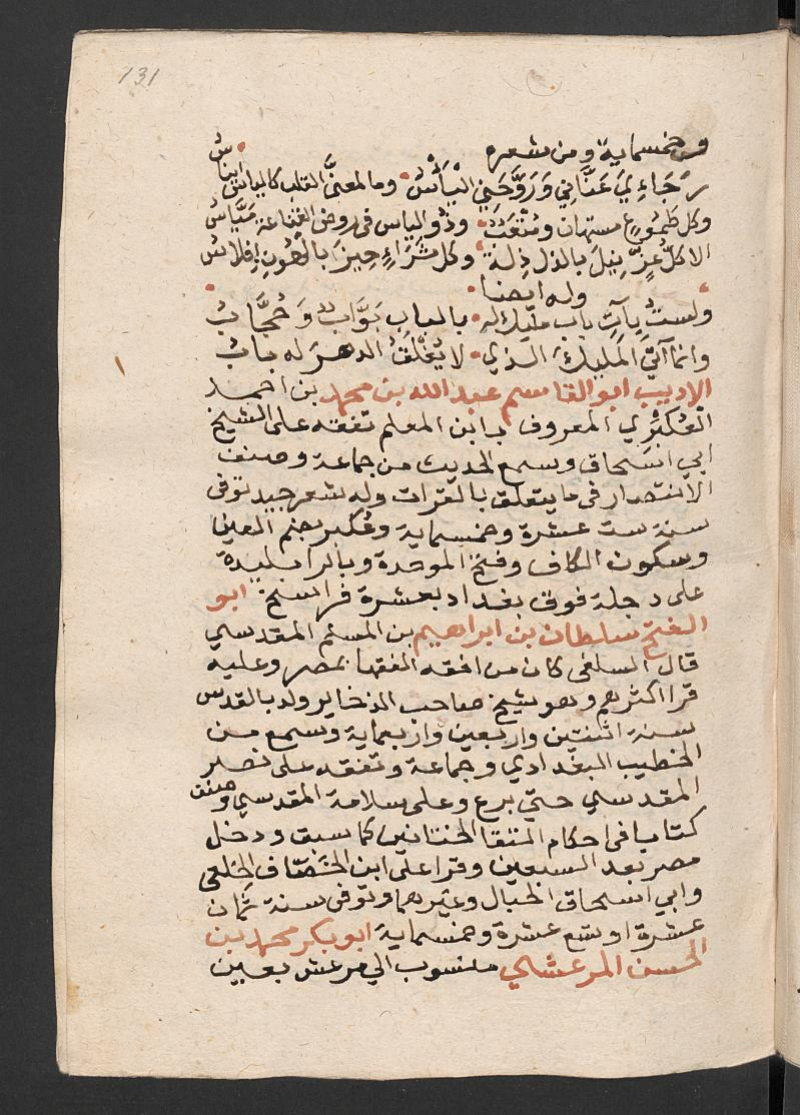 131
وخمسماية ومن شعره
رجاءي عناني وروحني الياس وما لمعنى القلب كالياس ايناس
وكل طموع مستهان ومتعب وذو الياس في روض القناعة مياس
الا كل عز نيل بالذل ذلة وكل ثراء حيز بالهون افلاس
وله ايضا
ولست بآت باب مليك له بالباب بواب وحجاب
وانما آتي المليك الذي لا يغلق الدهر له باب
الاديب ابو القاسم عبد الله بن محمد بن احمد
العكبري المعروف بابن المعلم تفقه على الشيخ
ابي اسحاق وسمع الحديث من جماعة وصنف
الانتصار في ما يتعلق بالقرات وله شعر جيد توفى
سنة ست عشرة وخمسماية وعكبر بضم العين
وسكون الكاف وفتح الموحدة وبالرا بليدة
على دجلة فوق بغداد بعشرة فراسخ ابو
الفتح سلطان بن ابراهيم بن المسلم المقدسي
قال السلفى كان من افقه الفقها بمصر وعليه
قرا اكثرهم وهو شيخ صاحب الذخاير ولد بالقدس
سنة اثنتين واربعين واربعماية وسمع من
الخطيب البغدادي وجماعة وتفقه على نصر
المقدسي حتى برع وعلى سلامة المقدسي وصنف
كتابا في احكام التقا الختانين كما سبق ودخل
مصر بعد السبعين وقرا على ابن الخلعي
وابي اسحاق الحبال وغيرهما وتوفى سنة ثمان
عشرة او تسع عشرة وخمسماية ابو بكر محمد بن
الحسن المرعشي منسوب الي مرعش بعين